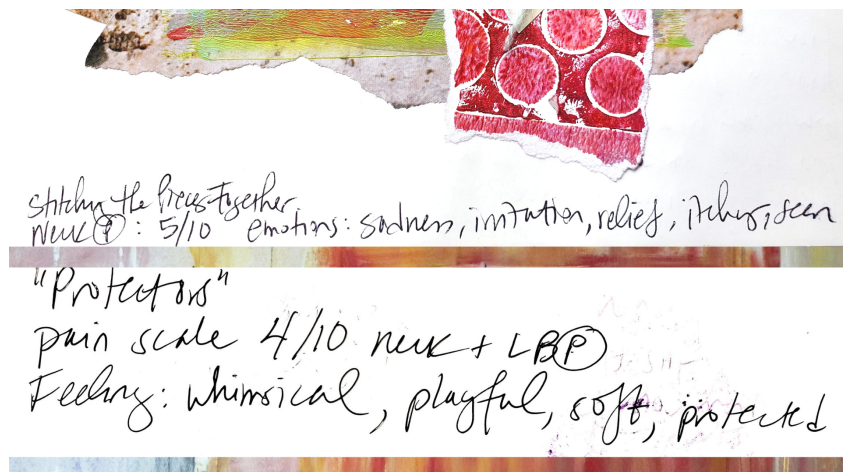 Stitching the Pieces Together
Neck Ⓟ: 5/10 emotions: sadness, irritation, relief, itching, seen
"Protectors"
pain scale 4/10 neck + LBⓅ
Feeling: whimsical, playful, soft, protected